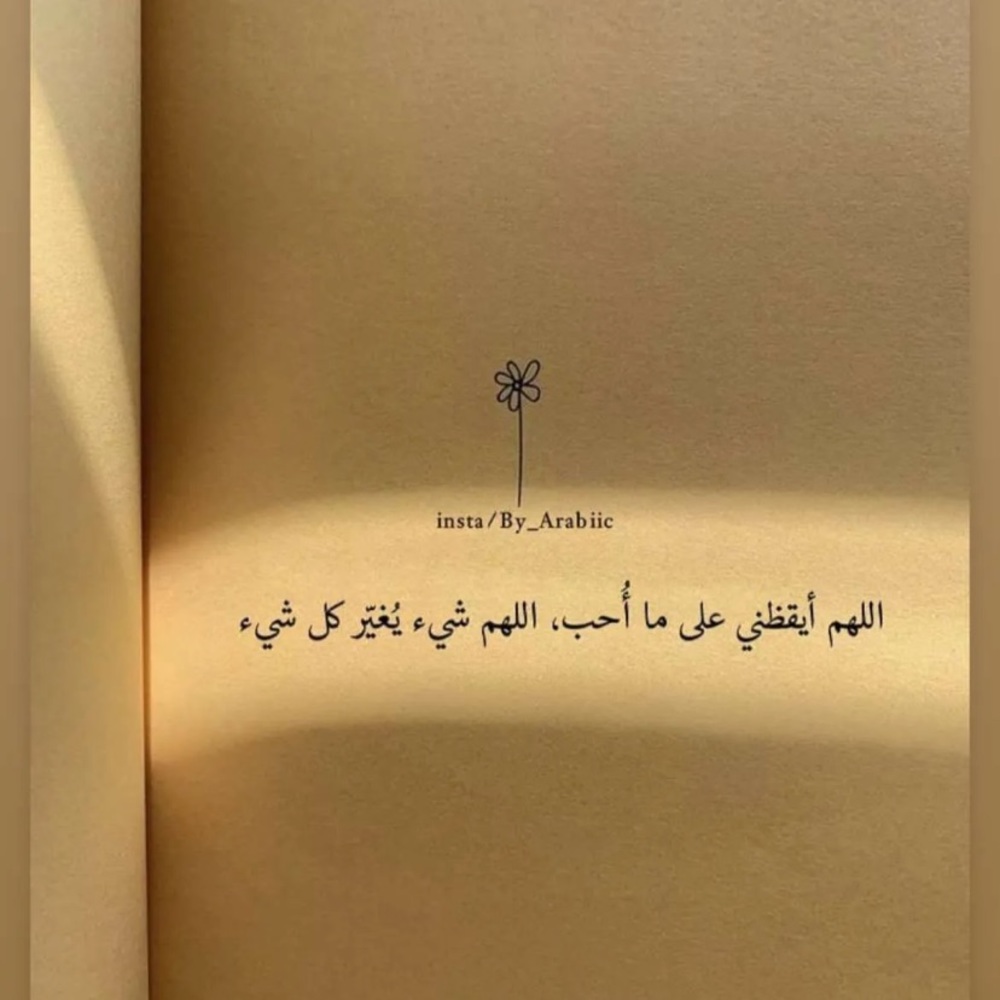 insta/By_Arabiic
اللهم أيقظني على ما أُحب، اللهم شيء يُغيّر كل شيء